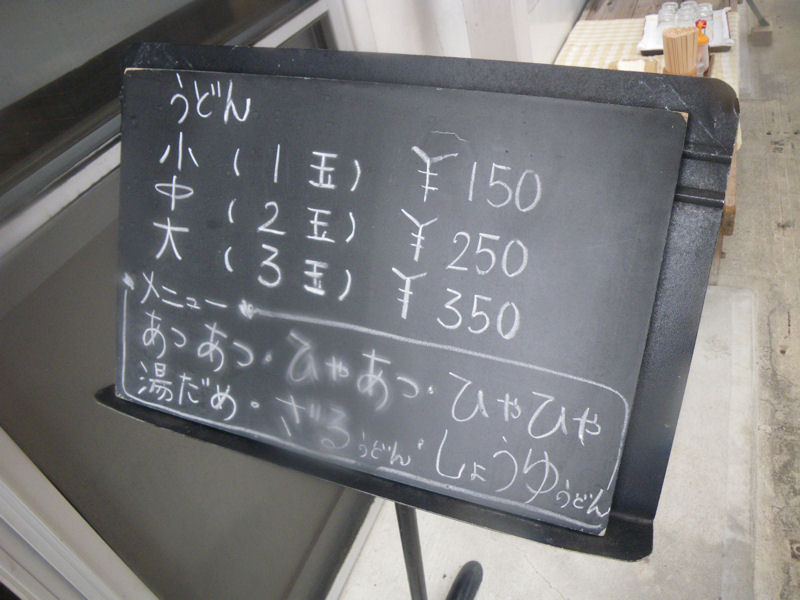 うどん
小 (1玉) ¥150
中 (2玉) ¥250
大 (3玉) ¥350
メニュー
あつあつ・ひやあつ・ひやひや
湯だめ・ざるうどん・しょうゆうどん